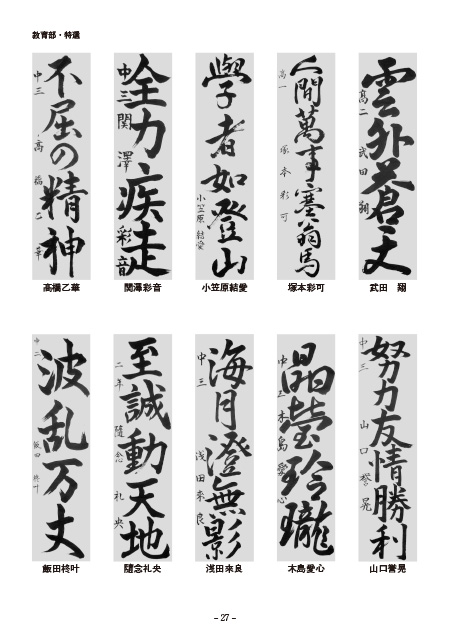 教育部・特選
雲外蒼天
高二 武田 翔
武田　翔
人間萬事塞翁馬
高一 塚本彩可
塚本彩可
學者如登山
小笠原結愛
小笠原結愛
全力疾走
中三 関澤彩音
関澤彩音
不屈の精神
中三 高橋乙華
高橋乙華
努力友情勝利
中三 山口誉晃
山口誉晃
晶瑩玲瓏
木島愛心
木島愛心
海月澄無影
中三 浅田来良
浅田来良
至誠動天地
二年 隨念礼央
隨念礼央
波乱万丈
中二 飯田柊叶
飯田柊叶
- 27 -